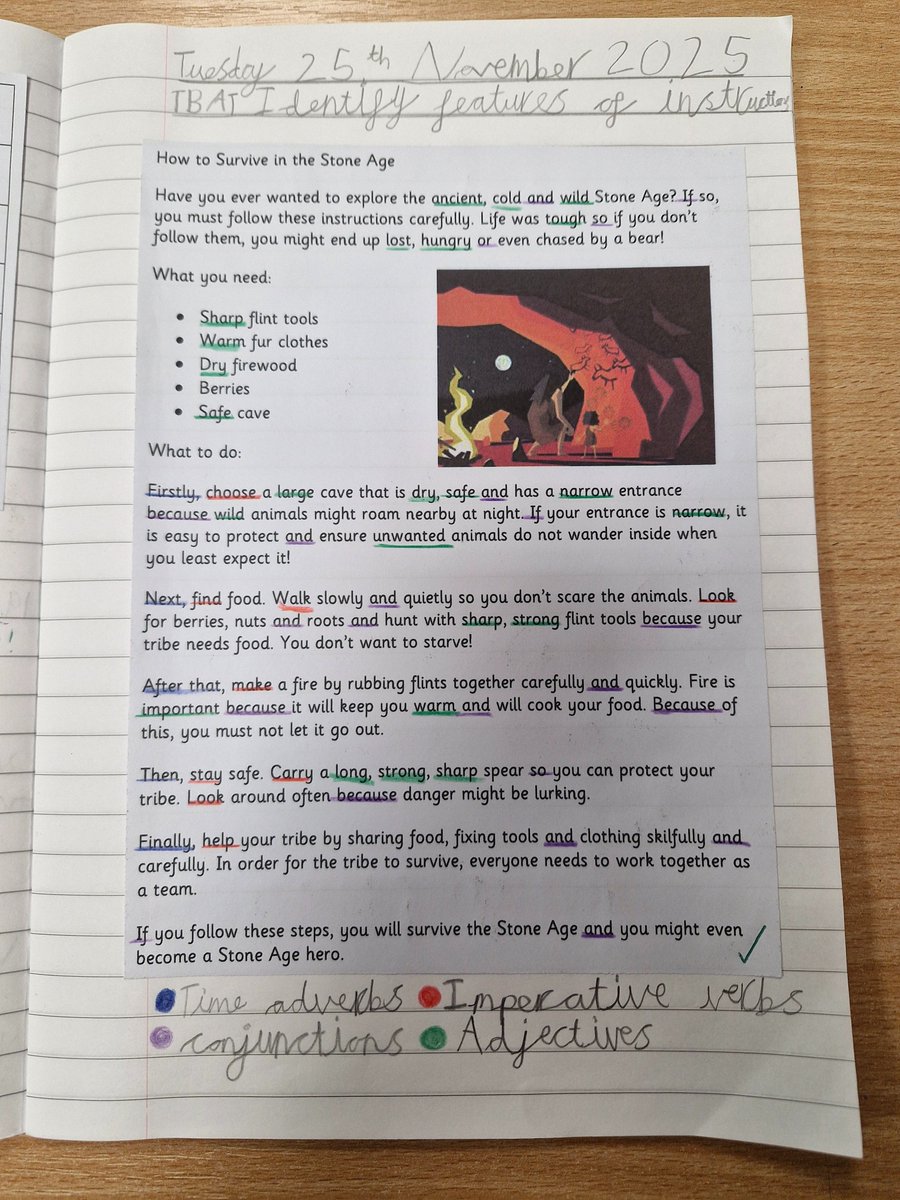 Tuesday 25th November 2025
TBAT Identify features of instructions
How to Survive in the Stone Age
Have you ever wanted to explore the ancient, cold and wild Stone Age? If so,
you must follow these instructions carefully. Life was tough so if you don't
follow them, you might end up lost, hungry or even chased by a bear!
What you need:
• Sharp flint tools
• Warm fur clothes
• Dry firewood
• Berries
• Safe cave
What to do:
Firstly, choose a large cave that is dry, safe and has a narrow entrance
because wild animals might roam nearby at night. If your entrance is narrow, it
is easy to protect and ensure unwanted animals do not wander inside when
you least expect it!
Next, find food. Walk slowly and quietly so you don't scare the animals. Look
for berries, nuts and roots and hunt with sharp, strong flint tools because your
tribe needs food. You don't want to starve!
After that, make a fire by rubbing flints together carefully and quickly. Fire is
important because it will keep you warm and will cook your food. Because of
this, you must not let it go out.
Then, stay safe. Carry a long, strong, sharp spear so you can protect your
tribe. Look around often because danger might be lurking.
Finally, help your tribe by sharing food, fixing tools and clothing skilfully and
carefully. In order for the tribe to survive, everyone needs to work together as
a team.
If you follow these steps, you will survive the Stone Age and you might even
become a Stone Age hero.
Time adverbs Imperative verbs
conjunctions Adjectives